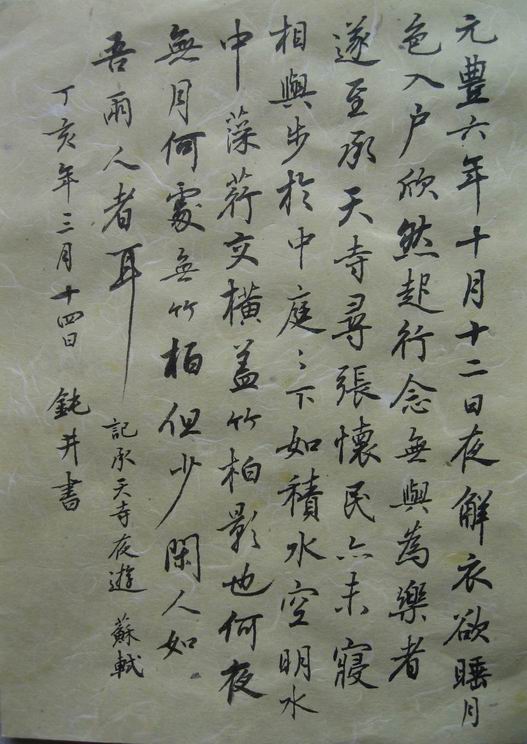 元豐六年十月十二日夜解衣欲睡月
色入户欣然起行念無與為樂者
遂至承天寺尋張懷民亦未寢
相與步於中庭〻下如積水空明水
中藻荇交橫蓋竹柏影也何夜
無月何處無竹柏但少閑人如
吾兩人者耳
記承天寺夜遊 蘇軾
丁亥年三月十四日 鈍井書